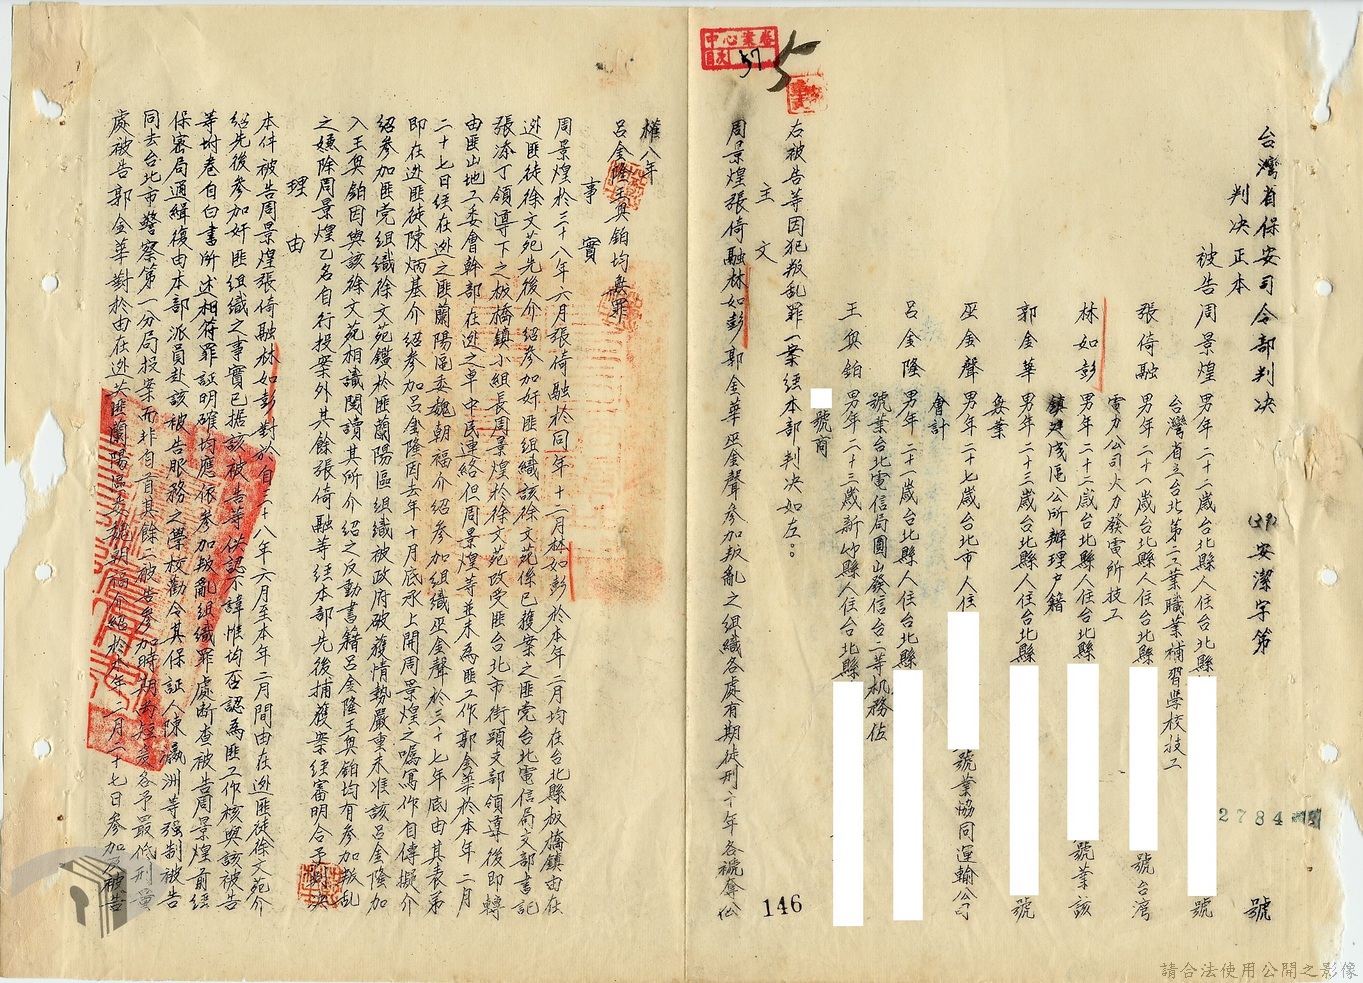 台灣省保安司令部判決
(39)安潔字第
2784
號
判決正本
被告周景煌男年二十二歲台北縣人住台北縣
號
台灣省立台北第二工業職業補習學校技工
張倚融男年二十一歲台北縣人住台北縣
號台灣
電力公司火力發電所技工
林如彭男年二十二歲台北縣人住台北縣
號業該
鎮戌區公所辦理戶籍
郭金華男年二十三歲台北縣人住台北縣
號
無業
巫金聲男年二十七歲台北市人住
號業協同運輸公司
會計
呂金隆男年二十一歲台北縣人住台北縣
號業台北電信局圓山發信台二等机務佐
王奐鉑男年二十三歲新竹縣人住台北縣
號商
右被告等因犯叛乱罪一案經本部判決如左：
主文
周景煌張倚融林如彭郭金華巫金聲參加叛亂之組織各處有期徒刑十年各褫奪公
中心業務
目次
57
5
146
權八年
呂金隆王奐鉑均無罪
事實
周景煌於三十八年六月張倚融於同年十二月林如彭於本年二月均在台北縣板橋鎮由在
逃匪徒徐文苑先後介紹參加奸匪組織該徐文苑係已獲案之匪党台北電信局支部書記
張添丁領導下之板橋鎮小組長周景煌於徐文苑改受匪台北市街頭支部領導後即轉
由匪山地工委會幹部在逃之卓中民連絡但周景煌等並未為匪工作郭金華於本年二月
二十七日經在逃之匪蘭陽區委魏朝福介紹參加組織巫金聲於三十七年底由其表弟
即在逃匪徒陳炳基介紹參加呂金隆因去年十月底承上開周景煌之囑寫作自傳擬介
紹參加匪党組織徐文苑鑑於匪蘭陽區組織被政府破獲情勢嚴重未准該呂金隆加
入王奐鉑因與該徐文苑相識閱讀其所介紹之反動書籍呂金隆王奐鉑均有參加叛乱
之嫌除周景煌乙名自行投案外其餘張倚融等經本部先後捕獲案經審明合予判決
理由
本件被告周景煌張倚融林如彭對於自三十八年六月至本年二月間由在逃匪徒徐文苑介
紹先後參加奸匪組織之事實已据該被告等供認不諱惟均否認為匪工作核與該被告
等附卷自白書所述相符罪証明確均應依參加叛亂組織罪處断查被告周景煌前經
保密局通緝復由本部派員赴該被告服務之學校勸令其保証人陳瀛洲等强制被告
同去台北市警察第一分局投案而非自首其餘二被告參加時期均短爰各予最低刑量
處被告郭金華對於由在逃共匪蘭陽區委魏朝福介紹於本年二月二十七日參加及被告
請合法使用公開之影像